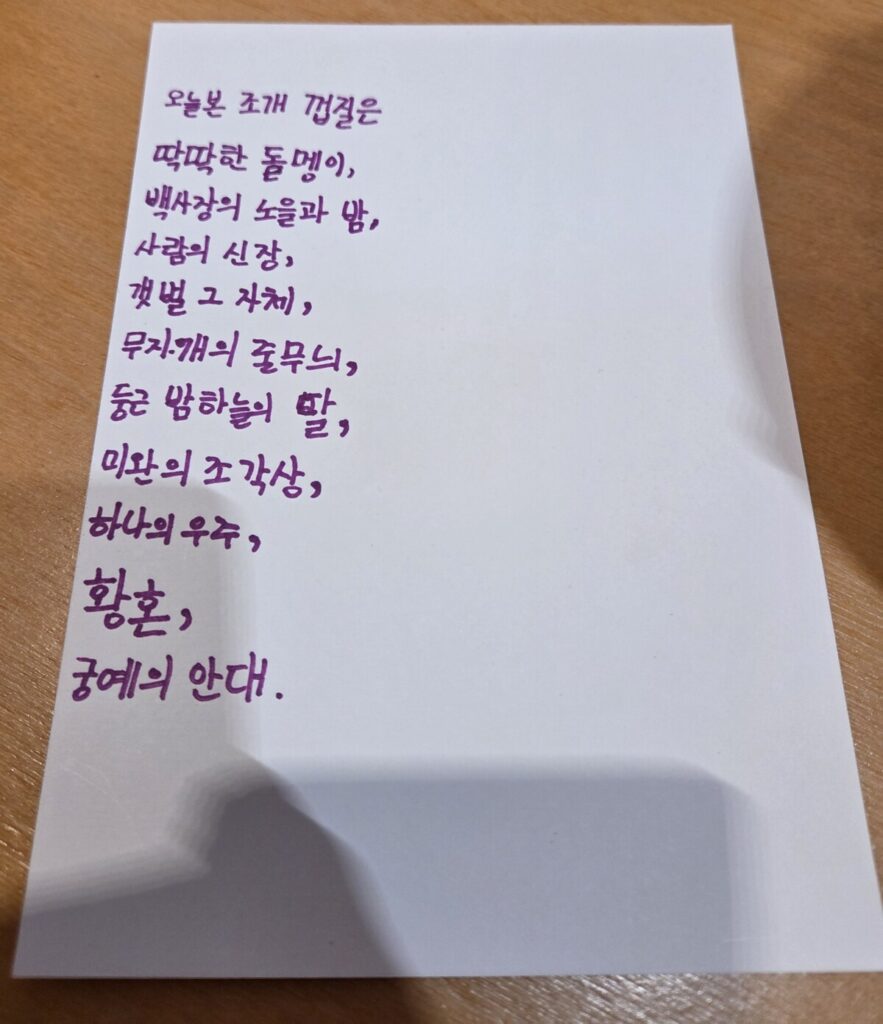 오늘본 조개 껍질은
딱딱한 돌멩이,
백사장의 노을과 밤,
사람의 신장,
갯벌 그 자체,
무지개의 줄무늬,
둥근 밤하늘의 달,
미완의 조각상,
하나의 우주,
황혼,
궁예의 안대.